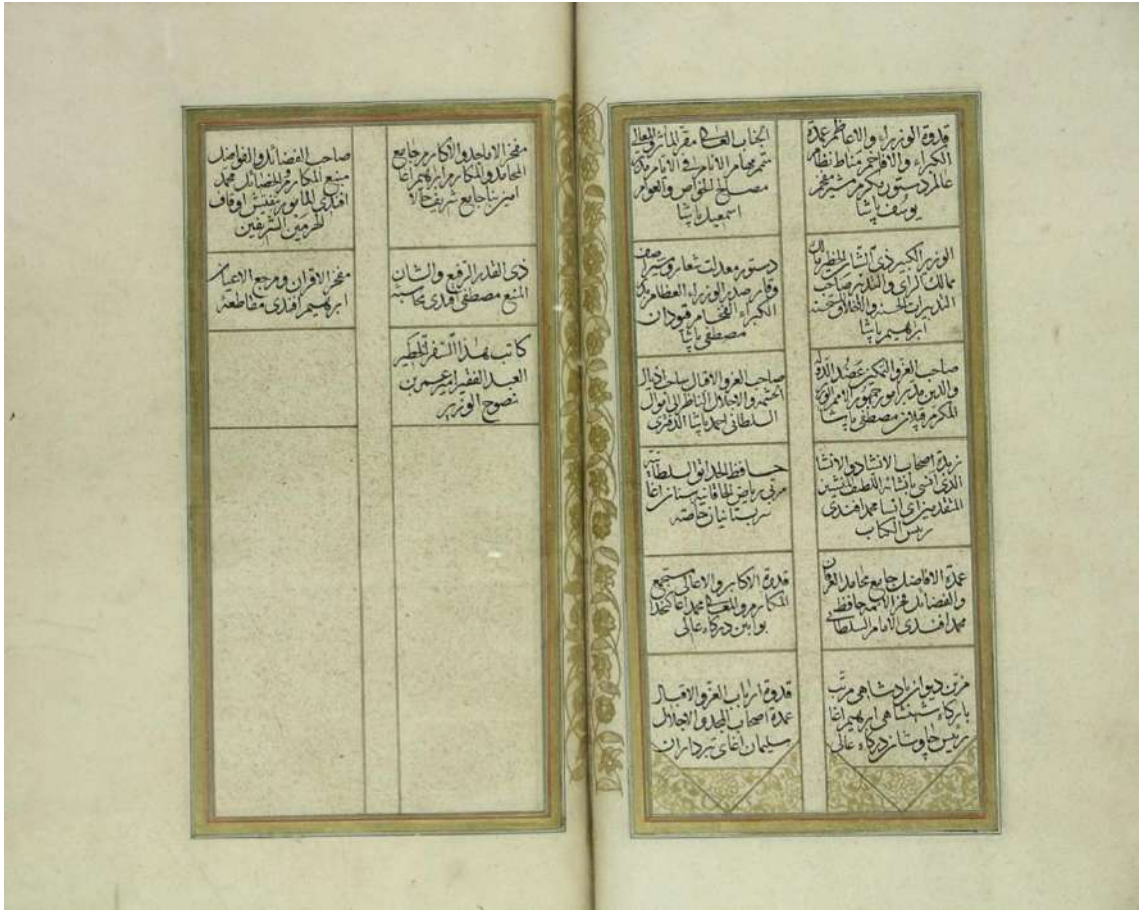 قدوة الوزراء والاعاظم عمدة
الكبراء والافاخم مناط نظام
عالم دستور مكرم مشير مفخم
يوسف پاشا
الوزير الكبير ذى
ممالك
التدبيرات الحسنه والاخلاق
ابرهيم پاشا
صاحب العز والتمكين عضد الدولة
والدين مدبر امور جمهور الامم الوزير
المكرم قپلان مصطفى پاشا
زبدة اصحاب الانشاد والانشا
الذى انسى بانشائه اللطيف المنشئين
المتقدمين اعنى محمد افندى
رئيس الكتاب
عمدة الافاضل جامع محامد العرفان
والفضائل فخر الائمه حافظ
محمد افندى الامام السلطانى
مزين ديوان پادشاهى مرتب
باركاه شهنشاهى ابرهيم اغا
رئيس چاوشان دركاه عالى
الجناب العالى مقر المآثر والمعالى
متمم مهام الانام فى الايام مدبر
مصالح الخواص والعوام
اسمعيل پاشا
دستور معدلت شعار ومشير آصف
وقار صدر الوزراء العظام
الكبراء الفخام قپودان
مصطفى پاشا
صاحب العز والاقبال ساحب اذيال
الحشمة والاجلال الناظر الى اموال
السلطانى احمد پاشا الدفترى
حافظ الحدائق السلطانيه
مربى رياض الخاقانيه سنان اغا
سر بستانيان خاصه
قدوة الاكابر والاعالى مستجمع
المكارم والمعالى محمد اغا كتخدا
بوابين دركاه عالى
قدوة ارباب العز والاقبال
عمدة اصحاب المجد والاجلال
سليمان اغاى تبرداران
مفخر الاماجد والاكارم جامع
المحامد والمكارم ابرهيم اغا
امير بنا جامع شريف حالا
ذى القدر الرفيع والشان
المنيع مصطفى افندى محاسبه
كاتب هذا السفر الخطير
العبد الفقير امير عمر بن
نصوح الوزير
صاحب الفضائل والفواضل
منبع المكارم والخصائل محمد
افندى المأمور بتفتيش اوقاف
الحرمين الشريفين
مفخر الاقران ومرجع الاعيان
ابرهيم افندى مقاطعة